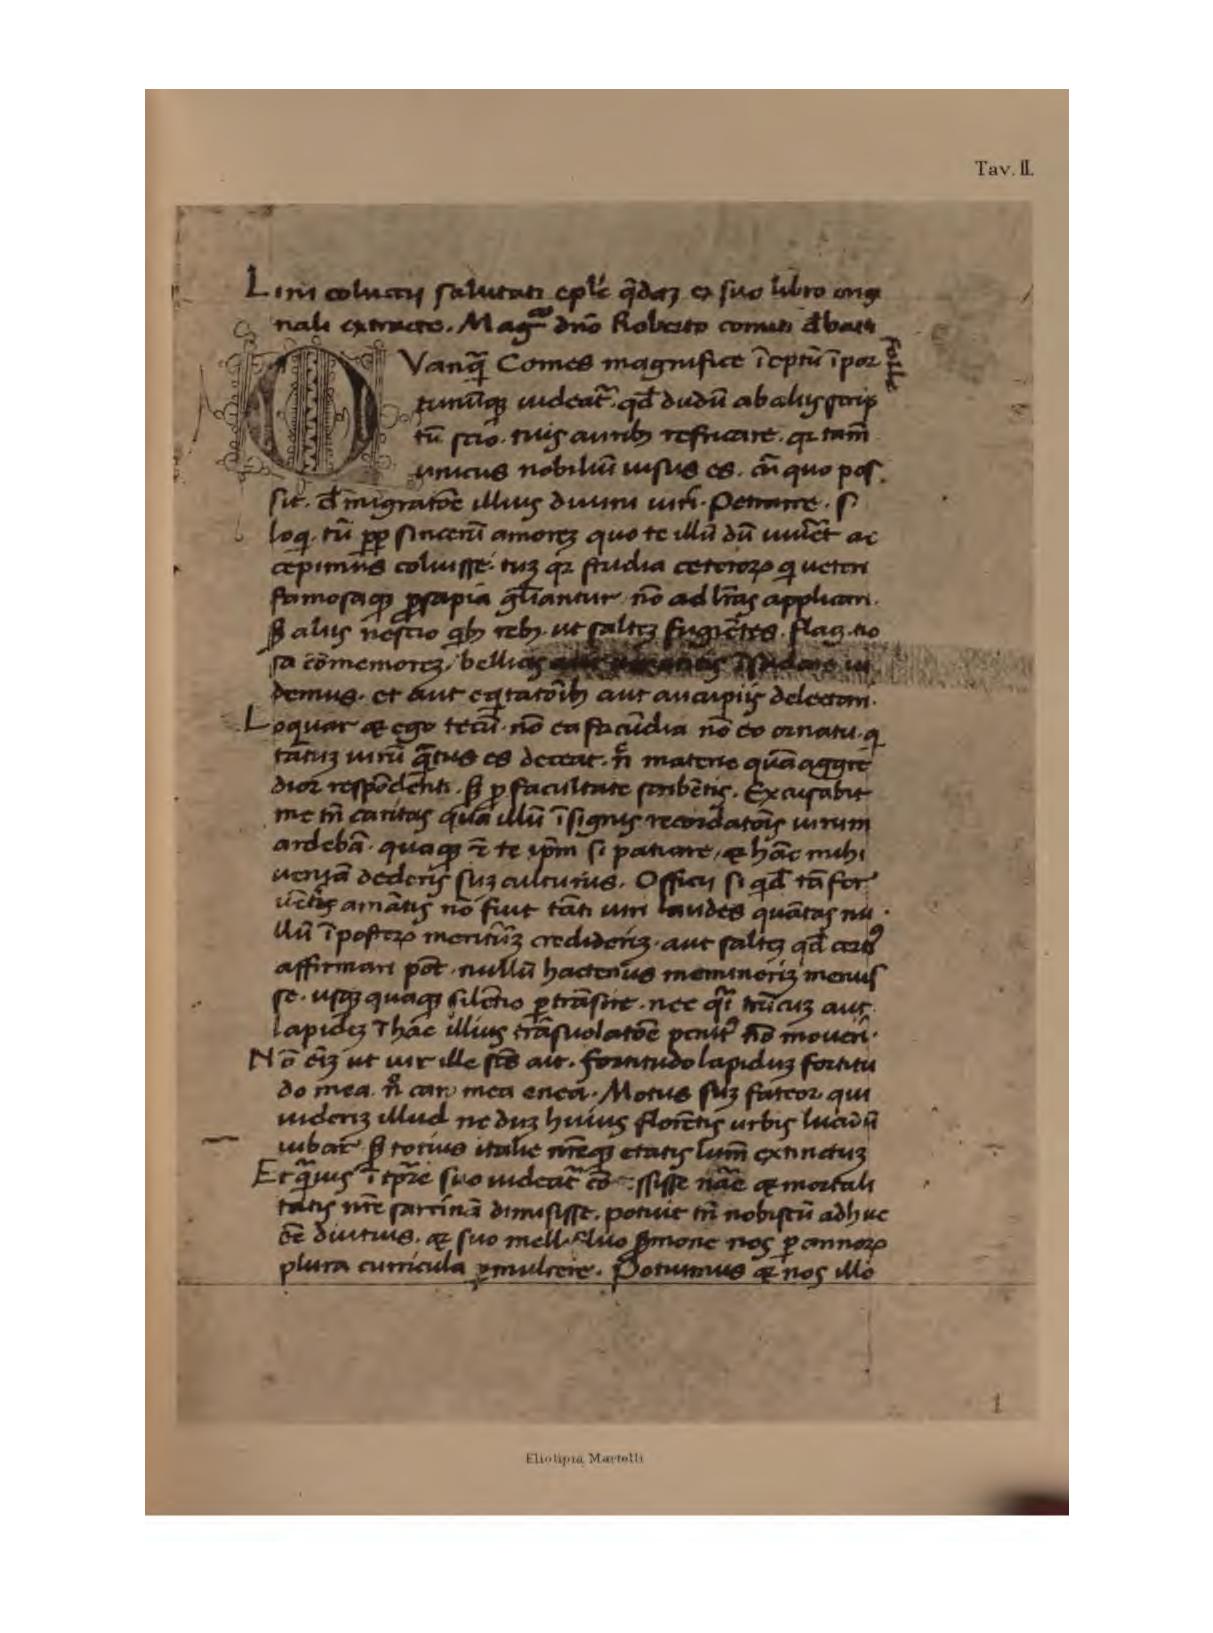 Tav. II.
Lini colucii salutati epľe q̄daȝ ex suo libro orig
nali extracte. Magco dn̄o Roberto comiti d̄ batti
QVanq̄ȝ Comes magnifice ī eptū īpor
forte
tunūqȝ uideat᷑. qd̄ dudū ab aliis scrip
tū scio. tuis aurib refricare. qꝛ tam̄
unicus nobiliū uisus es. cū quo pos
sit. d̄ migratōe illius diuini uiri. Petrarce. si
loqi. tū ꝓp sincerū amoreȝ quo te illū dū uiuēt ac
cepimus coluisse. tuȝ qꝛ studia ceteroꝝ qi ueteri
famosaqȝ ꝓsapia gľiantur. nō ad lr̄as applicari.
sȝ aliis nescio qib reb. ut salteȝ fugientes. flagitio
sa cōmemoreȝ. bellicis aut īsudare ui
demus. et aut eqitatōib aut aucupiis delectari.
Loquar & ego tecū. nō ea facūdia nō eo ornatu. q
tātuȝ uirū q̄tus es deceat. n̄ materie quā aggre
dior respōdenti. sȝ ꝓ facultate scribētis. Excusabit
me tn̄ caritas qua illū īsignis recordatōis uirum
ardebā. quaqȝ ī te ip̄m si patiare, & hāc mihi
ueniā dederis suȝ culturus. Officii si qd̄ tā fer
uētis amātis nō fuit tāti uiri laudes quātas nu
llū ī posteꝝ meritūȝ crediderī. aut salteȝ qd̄ certꝰ
affirmari pōt. nullū hactenus meminerīȝ meruis
se. usqȝ quaqȝ silētio ꝑtrāsire. nec qi trūcuȝ aut
lapideȝ ī hāc illius trāsuolatōe penitꝰ nō moueri.
Nō eīȝ ut uir ille scs̄ ait. fortitudo lapiduȝ fortitu
do mea. n̄ caro mea enea. Motus suȝ fateor. qui
uiderīȝ illud ne duȝ huius florētis urbis lucidū
iubar. sȝ totius italie nr̄eqȝ etatis lum̄ extinctuȝ
Et q̄uis ī tp̄re suo uideat᷑ cōcessisse nāe & mortali
tatis nr̄e sarcinā dimisisse. potuit tn̄ nobiscū adhuc
eē diutius. & suo mellifluo sermone nos ꝑ annoꝝ
plura curricula ꝑmulcere. Potuimus & nos illo
1
Eliotipia Martelli